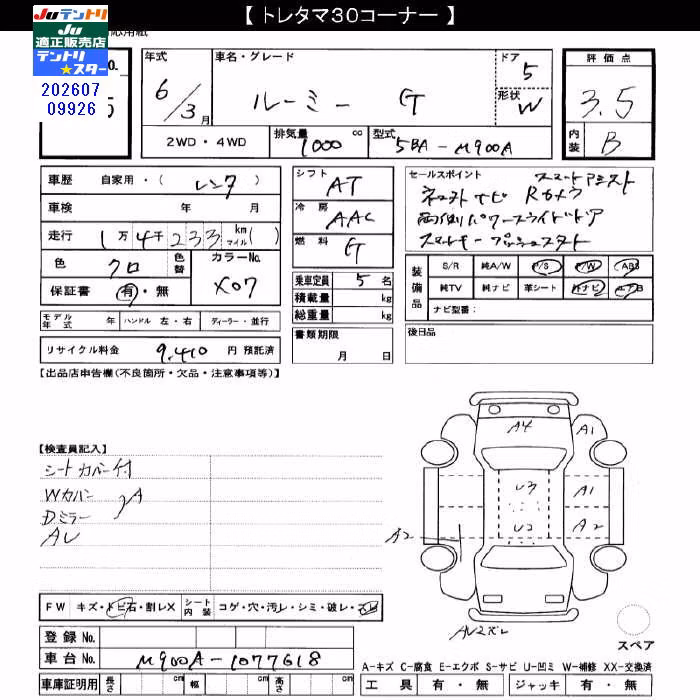 【 トレタマ30コーナー 】
Juテントリ
Ju
適正販売店
テントリ
★スター
202607
09926
年式
6/3月
車名・グレード
ルーミー G
ドア
5
形状
W
評価点
3.5
内装
B
2WD・4WD
排気量
1000 cc
型式
5BA-M900A
車歴 自家用・( レンタ )
車検 年 月
走行 1万4千233 km マイル( )
色
クロ
色替
カラーNo.
X07
保証書 有・無
シフト
AT
冷房
AAC
燃料
G
乗車定員 5 名
積載量 kg
総重量 kg
セールスポイント
スマートアシスト
Rカメラ
両側パワースライドドア
スマートキー プッシュスタート
装備品
S/R 純A/W P/S P/W ABS
純TV 純ナビ 革シート
ナビ型番：
モデル年式 年
ハンドル 左・右
ディーラー・並行
書類期限
月 日
後日品
リサイクル料金 9,410 円 預託済
【出品店申告欄(不良箇所・欠品・注意事項等)】
【検査員記入】
シートカバー付
Wカバー
Dミラー
A
A4
A1
U3
A1
U2
A2
A2
スペア
FW キズ・トビ石・割レX
シート内装 コゲ・穴・汚レ・シミ・破レ・スレ
登録No.
車台No. M900A-1077618
車庫証明用 長さ cm 幅 cm 高さ cm
A-キズ C-腐食 E-エクボ S-サビ U-凹ミ W-補修 XX-交換済
工具 有・無
ジャッキ 有・無